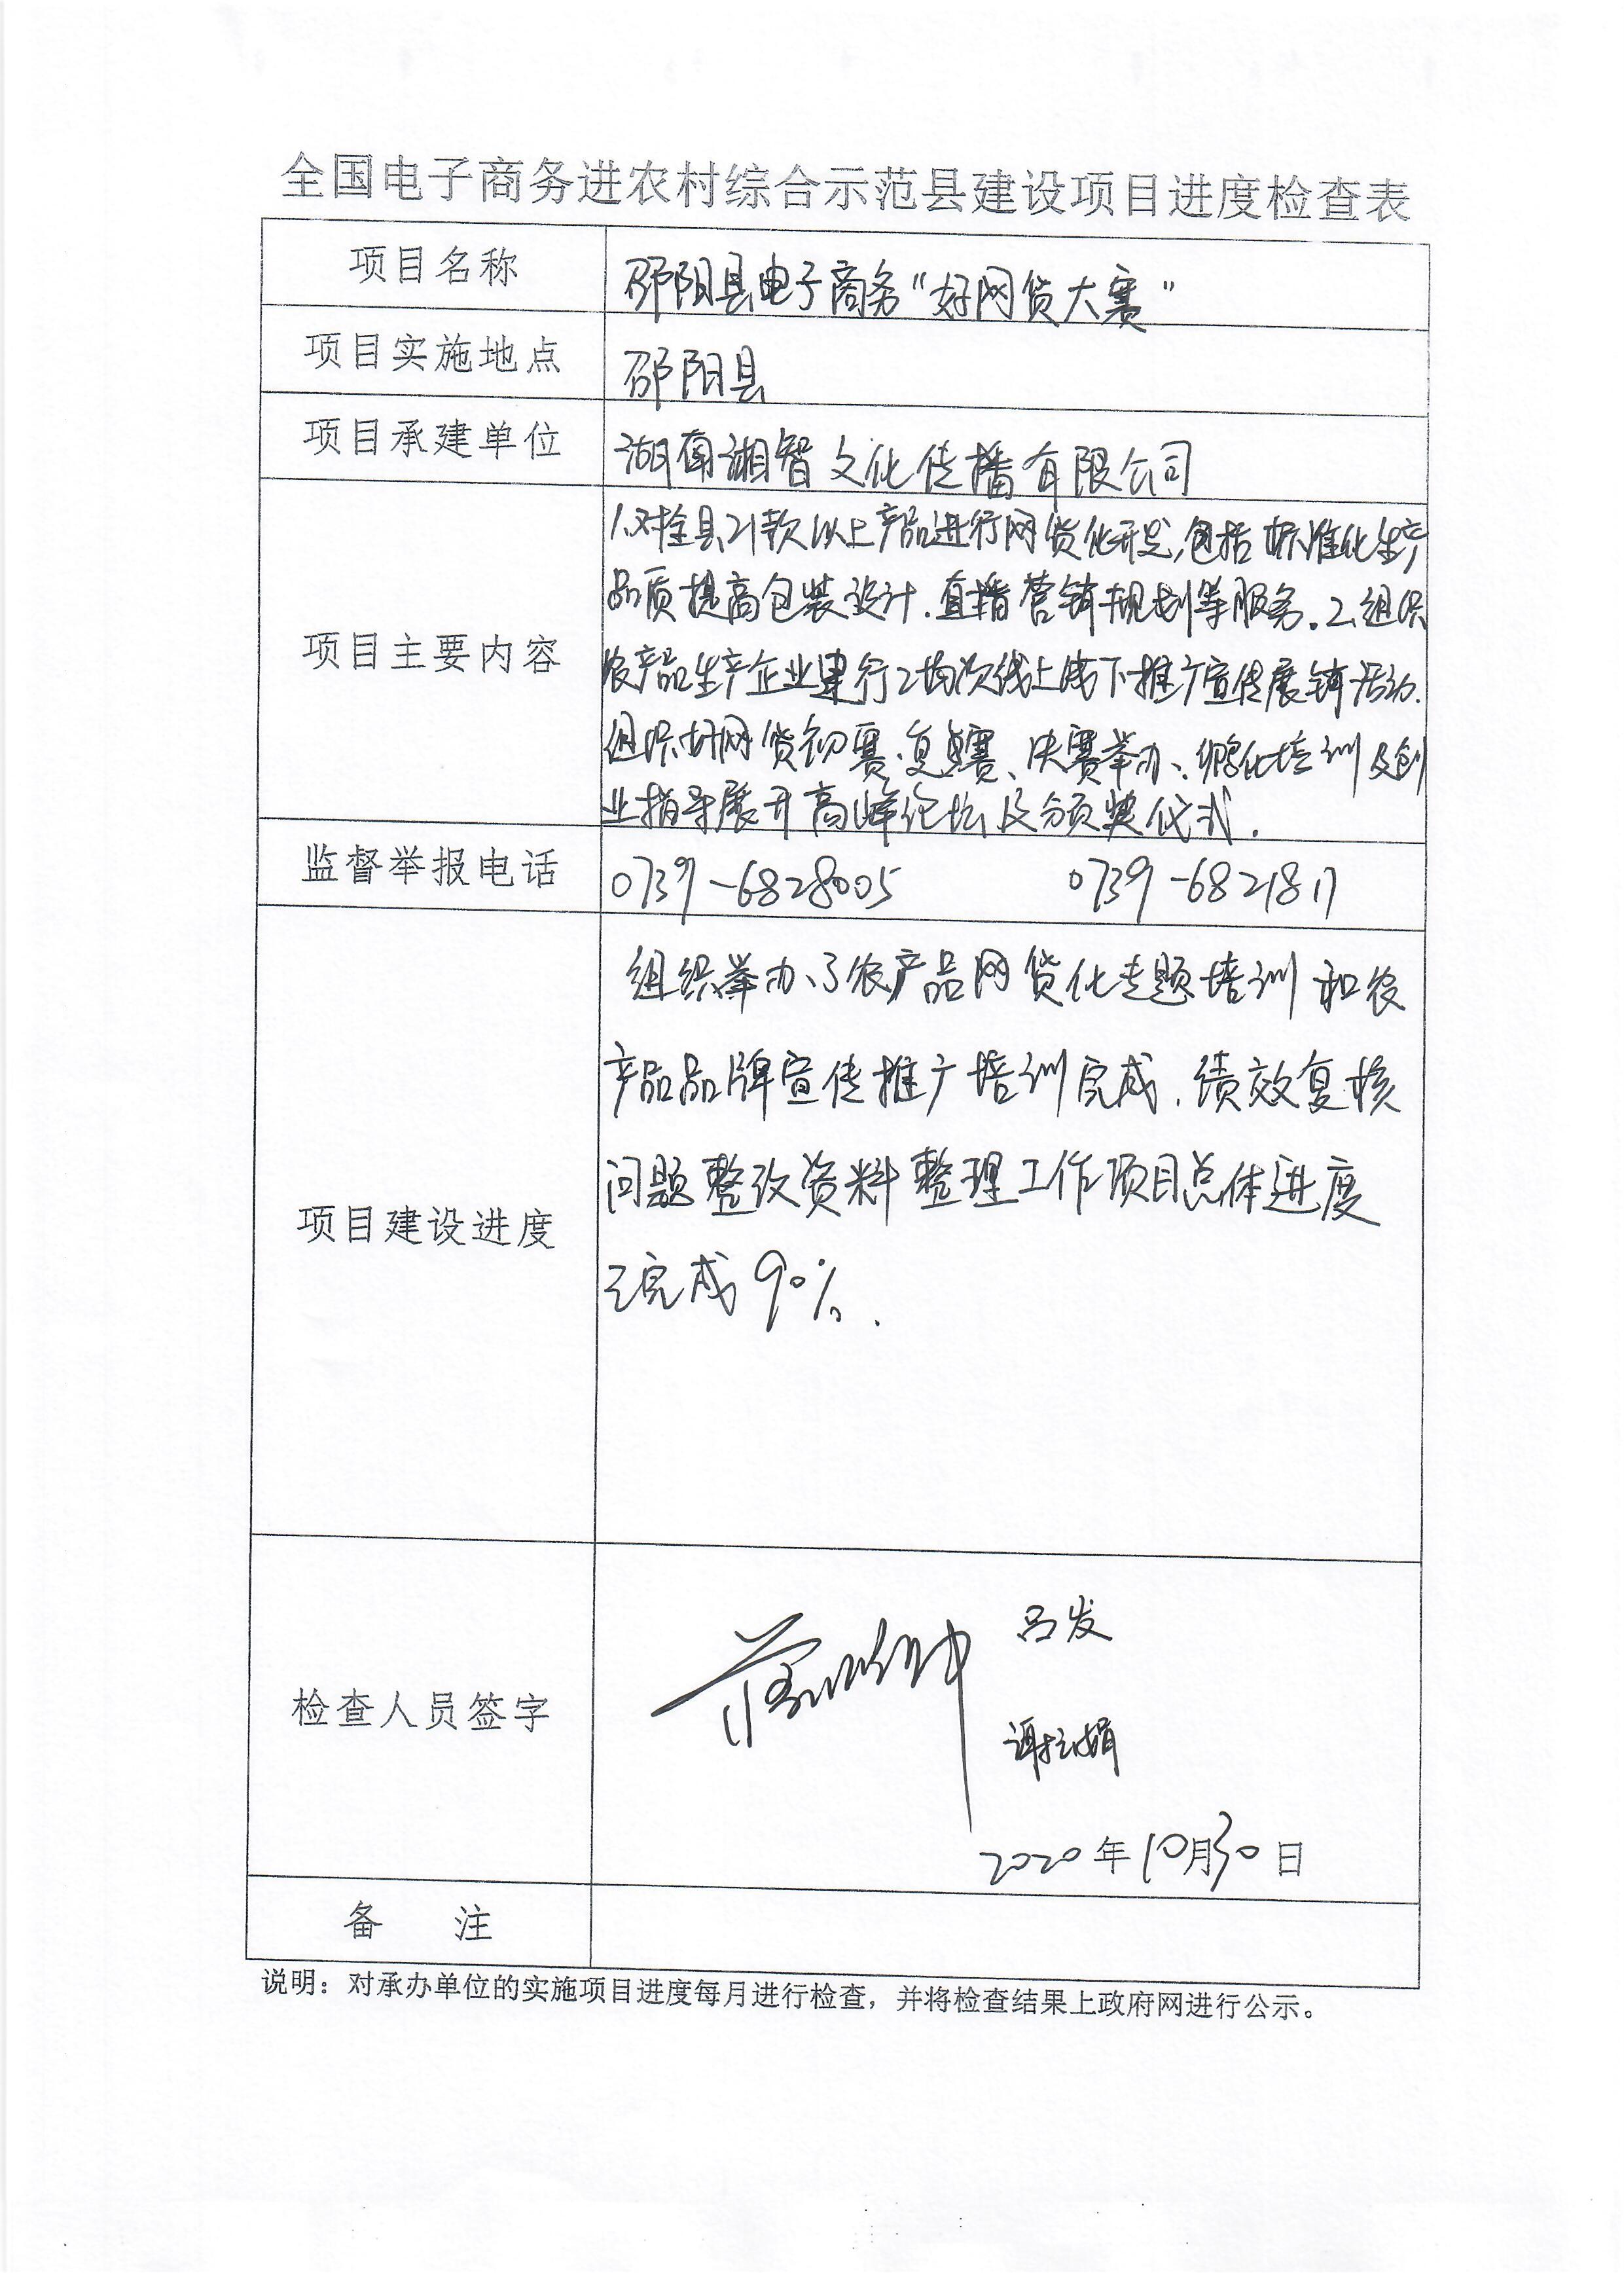 全国电子商务进农村综合示范县建设项目进度检查表
项目名称 邵阳县电子商务“好网货大赛”
项目实施地点 邵阳县
项目承建单位 湖南湘智文化传播有限公司
项目主要内容
1.对全县21款以上产品进行网货化开发,包括标准化生产
品质提高包装设计.直播营销规划等服务.2.组织
农产品生产企业进行2场次线上线下推广宣传展销活动.
组织好网货初赛.复赛、决赛举办、孵化培训及创
业指导展开高峰论坛及颁奖仪式.
监督举报电话 0739-6828005 0739-6821817
项目建设进度
组织举办了农产品网货化专题培训和农
产品品牌宣传推广培训完成.绩效复核
问题整改资料整理工作项目总体进度
已完成90%.
检查人员签字
吕发
2020年10月30日
备 注
说明：对承办单位的实施项目进度每月进行检查，并将检查结果上政府网进行公示。